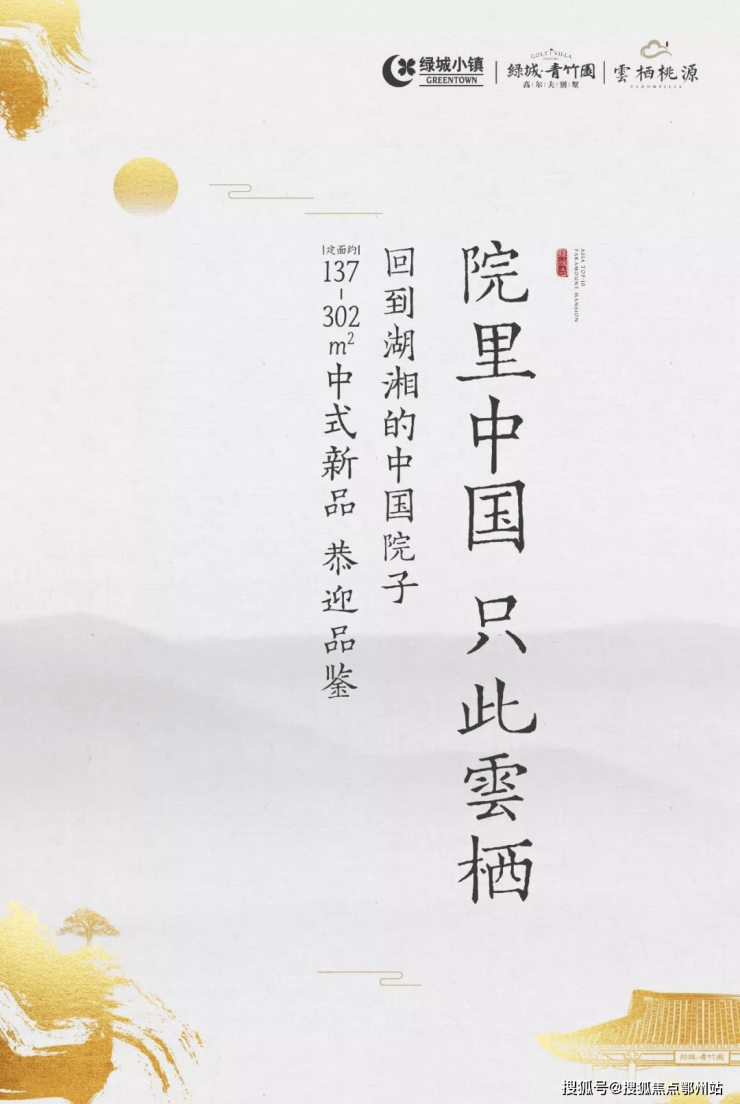 绿城小镇
GREENTOWN
GOLF VILLA
緑城·青竹園
高|尔|夫|别|墅
雲栖桃源
院里中国 只此雲栖
ASIA TOP·10
PARAMOUNT MANSION
回到湖湘的中国院子
|建面約|
137-302m²中式新品 恭迎品鉴
緑城·青竹園
搜狐号@搜狐焦点鄂州站